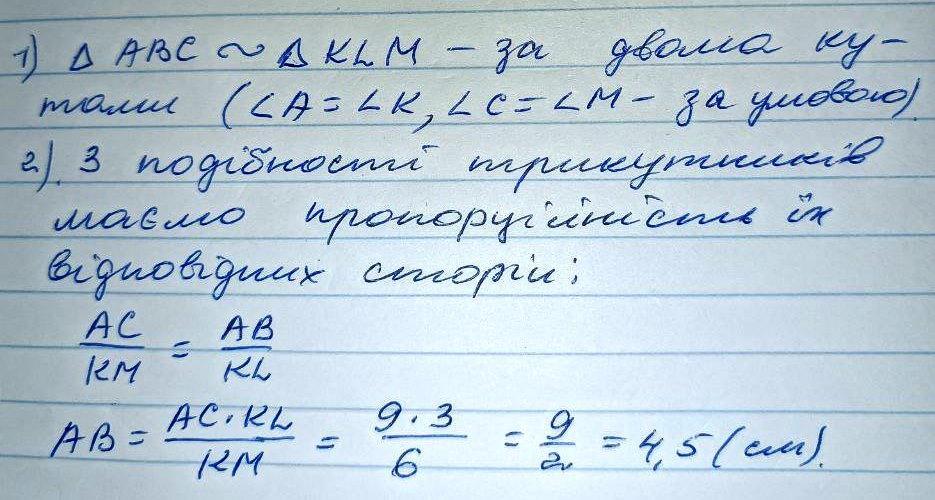 1) Δ ABC ~ Δ KLM – за двома ку-
тами (∠A = ∠K, ∠C = ∠M – за умовою).
2). З подібності трикутників
маємо пропорційність їх
відповідних сторін:
AC/KM = AB/KL
AB = AC·KL/KM = 9·3/6 = 9/2 = 4,5 (см).